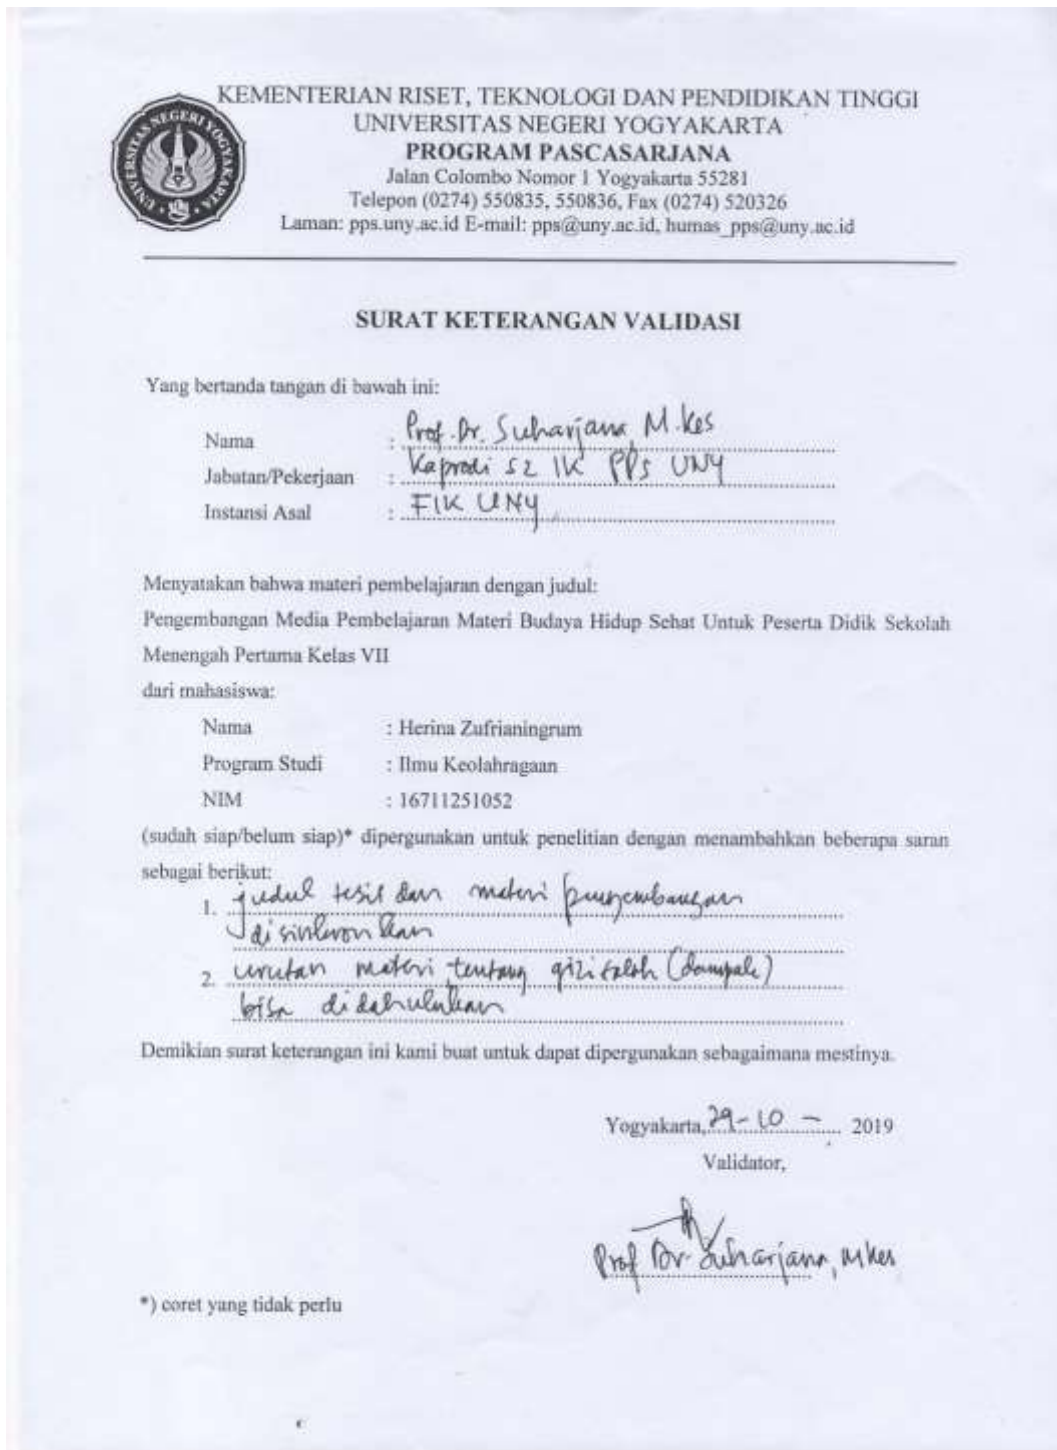 KEMENTERIAN RISET, TEKNOLOGI DAN PENDIDIKAN TINGGI
UNIVERSITAS NEGERI YOGYAKARTA
PROGRAM PASCASARJANA
Jalan Colombo Nomor 1 Yogyakarta 55281
Telepon (0274) 550835, 550836, Fax (0274) 520326
Laman: pps.uny.ac.id E-mail: pps@uny.ac.id, humas_pps@uny.ac.id
UNIVERSITAS NEGERI YOGYAKARTA
SURAT KETERANGAN VALIDASI
Yang bertanda tangan di bawah ini:
Nama : Prof. Dr. Suharjana M.Kes
Jabatan/Pekerjaan : Kaprodi S2 IK PPs UNY
Instansi Asal : FIK UNY
Menyatakan bahwa materi pembelajaran dengan judul:
Pengembangan Media Pembelajaran Materi Budaya Hidup Sehat Untuk Peserta Didik Sekolah
Menengah Pertama Kelas VII
dari mahasiswa:
Nama : Herina Zufrianingrum
Program Studi : Ilmu Keolahragaan
NIM : 16711251052
(sudah siap/belum siap)* dipergunakan untuk penelitian dengan menambahkan beberapa saran
sebagai berikut:
1. judul tesis dan materi pengembangan
disinkronkan
2. urutan materi tentang gizi salah (dampak)
bisa didahulukan
Demikian surat keterangan ini kami buat untuk dapat dipergunakan sebagaimana mestinya.
Yogyakarta, 29-10 - 2019
Validator,
Prof Dr. Suharjana, MKes
*) coret yang tidak perlu